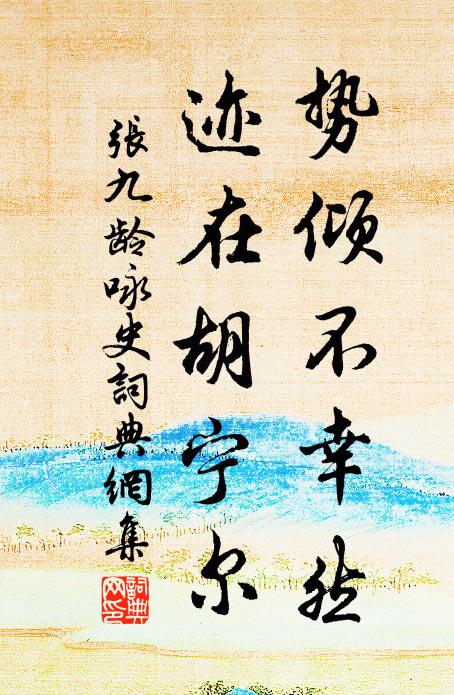 势倾不幸然
迹在胡宁尔
張九龄咏史詞典網集
詞典